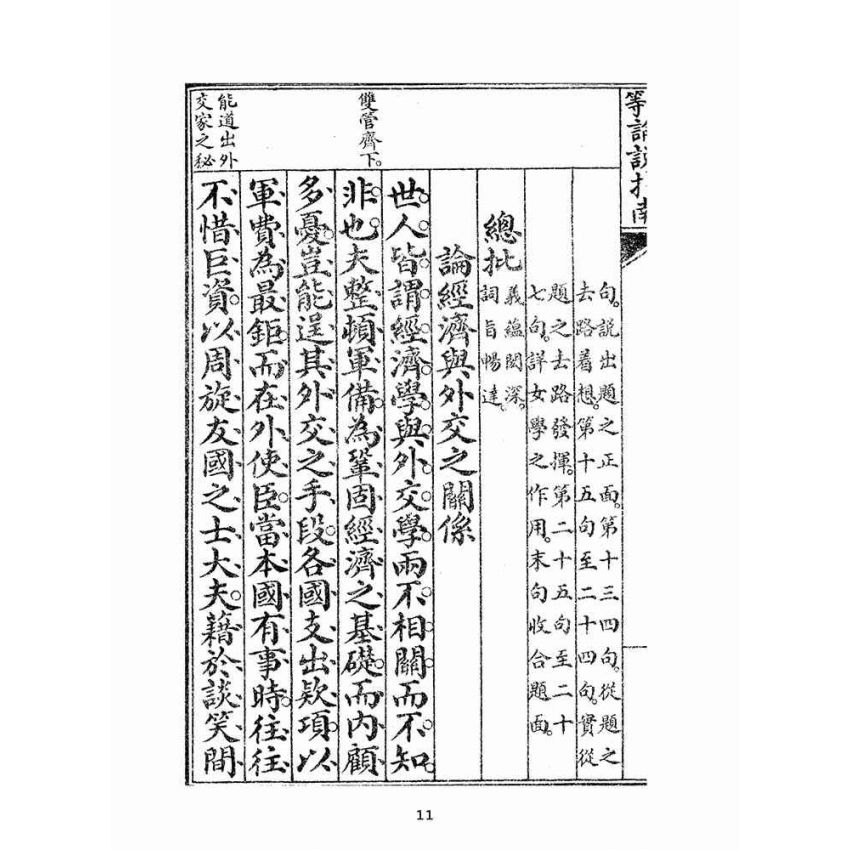 等論說指南
句。說出題之正面。第十三四句。從題之
去路着想。第十五句至二十四句。實從
題之去路發揮。第二十五句至二十
七句。詳女學之作用。末句收合題面。
總批
義蘊閎深。
詞旨暢達。
論經濟與外交之關係
世人皆謂經濟學與外交學兩不相關而不知
雙管齊下。
非也夫整頓軍備為鞏固經濟之基礎而內顧
多憂豈能逞其外交之手段各國支出欵項以
軍費為最鉅而在外使臣當本國有事時往往
能道出外
交家之秘
不惜巨資以周旋友國之士大夫藉於談笑間
11